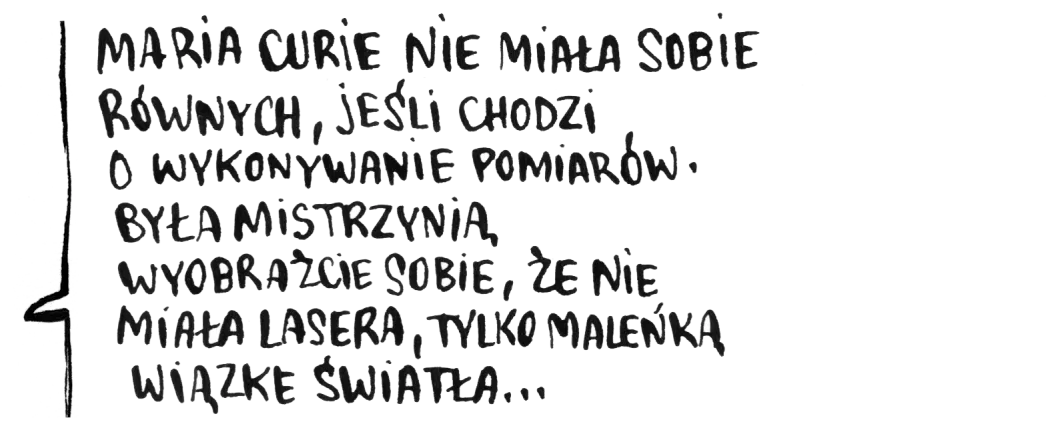 MARiA CURiE NiE MiAŁA SOBiE
RÓWNYCH, JEŚLi CHODZi
O WYKONYWANiE POMiARÓW.
BYŁA MiSTRZYNiĄ
WYOBRAŹCiE SOBiE, ŻE NiE
MiAŁA LASERA, TYLKO MALEŃKĄ
WiĄZKE ŚWiATŁA...